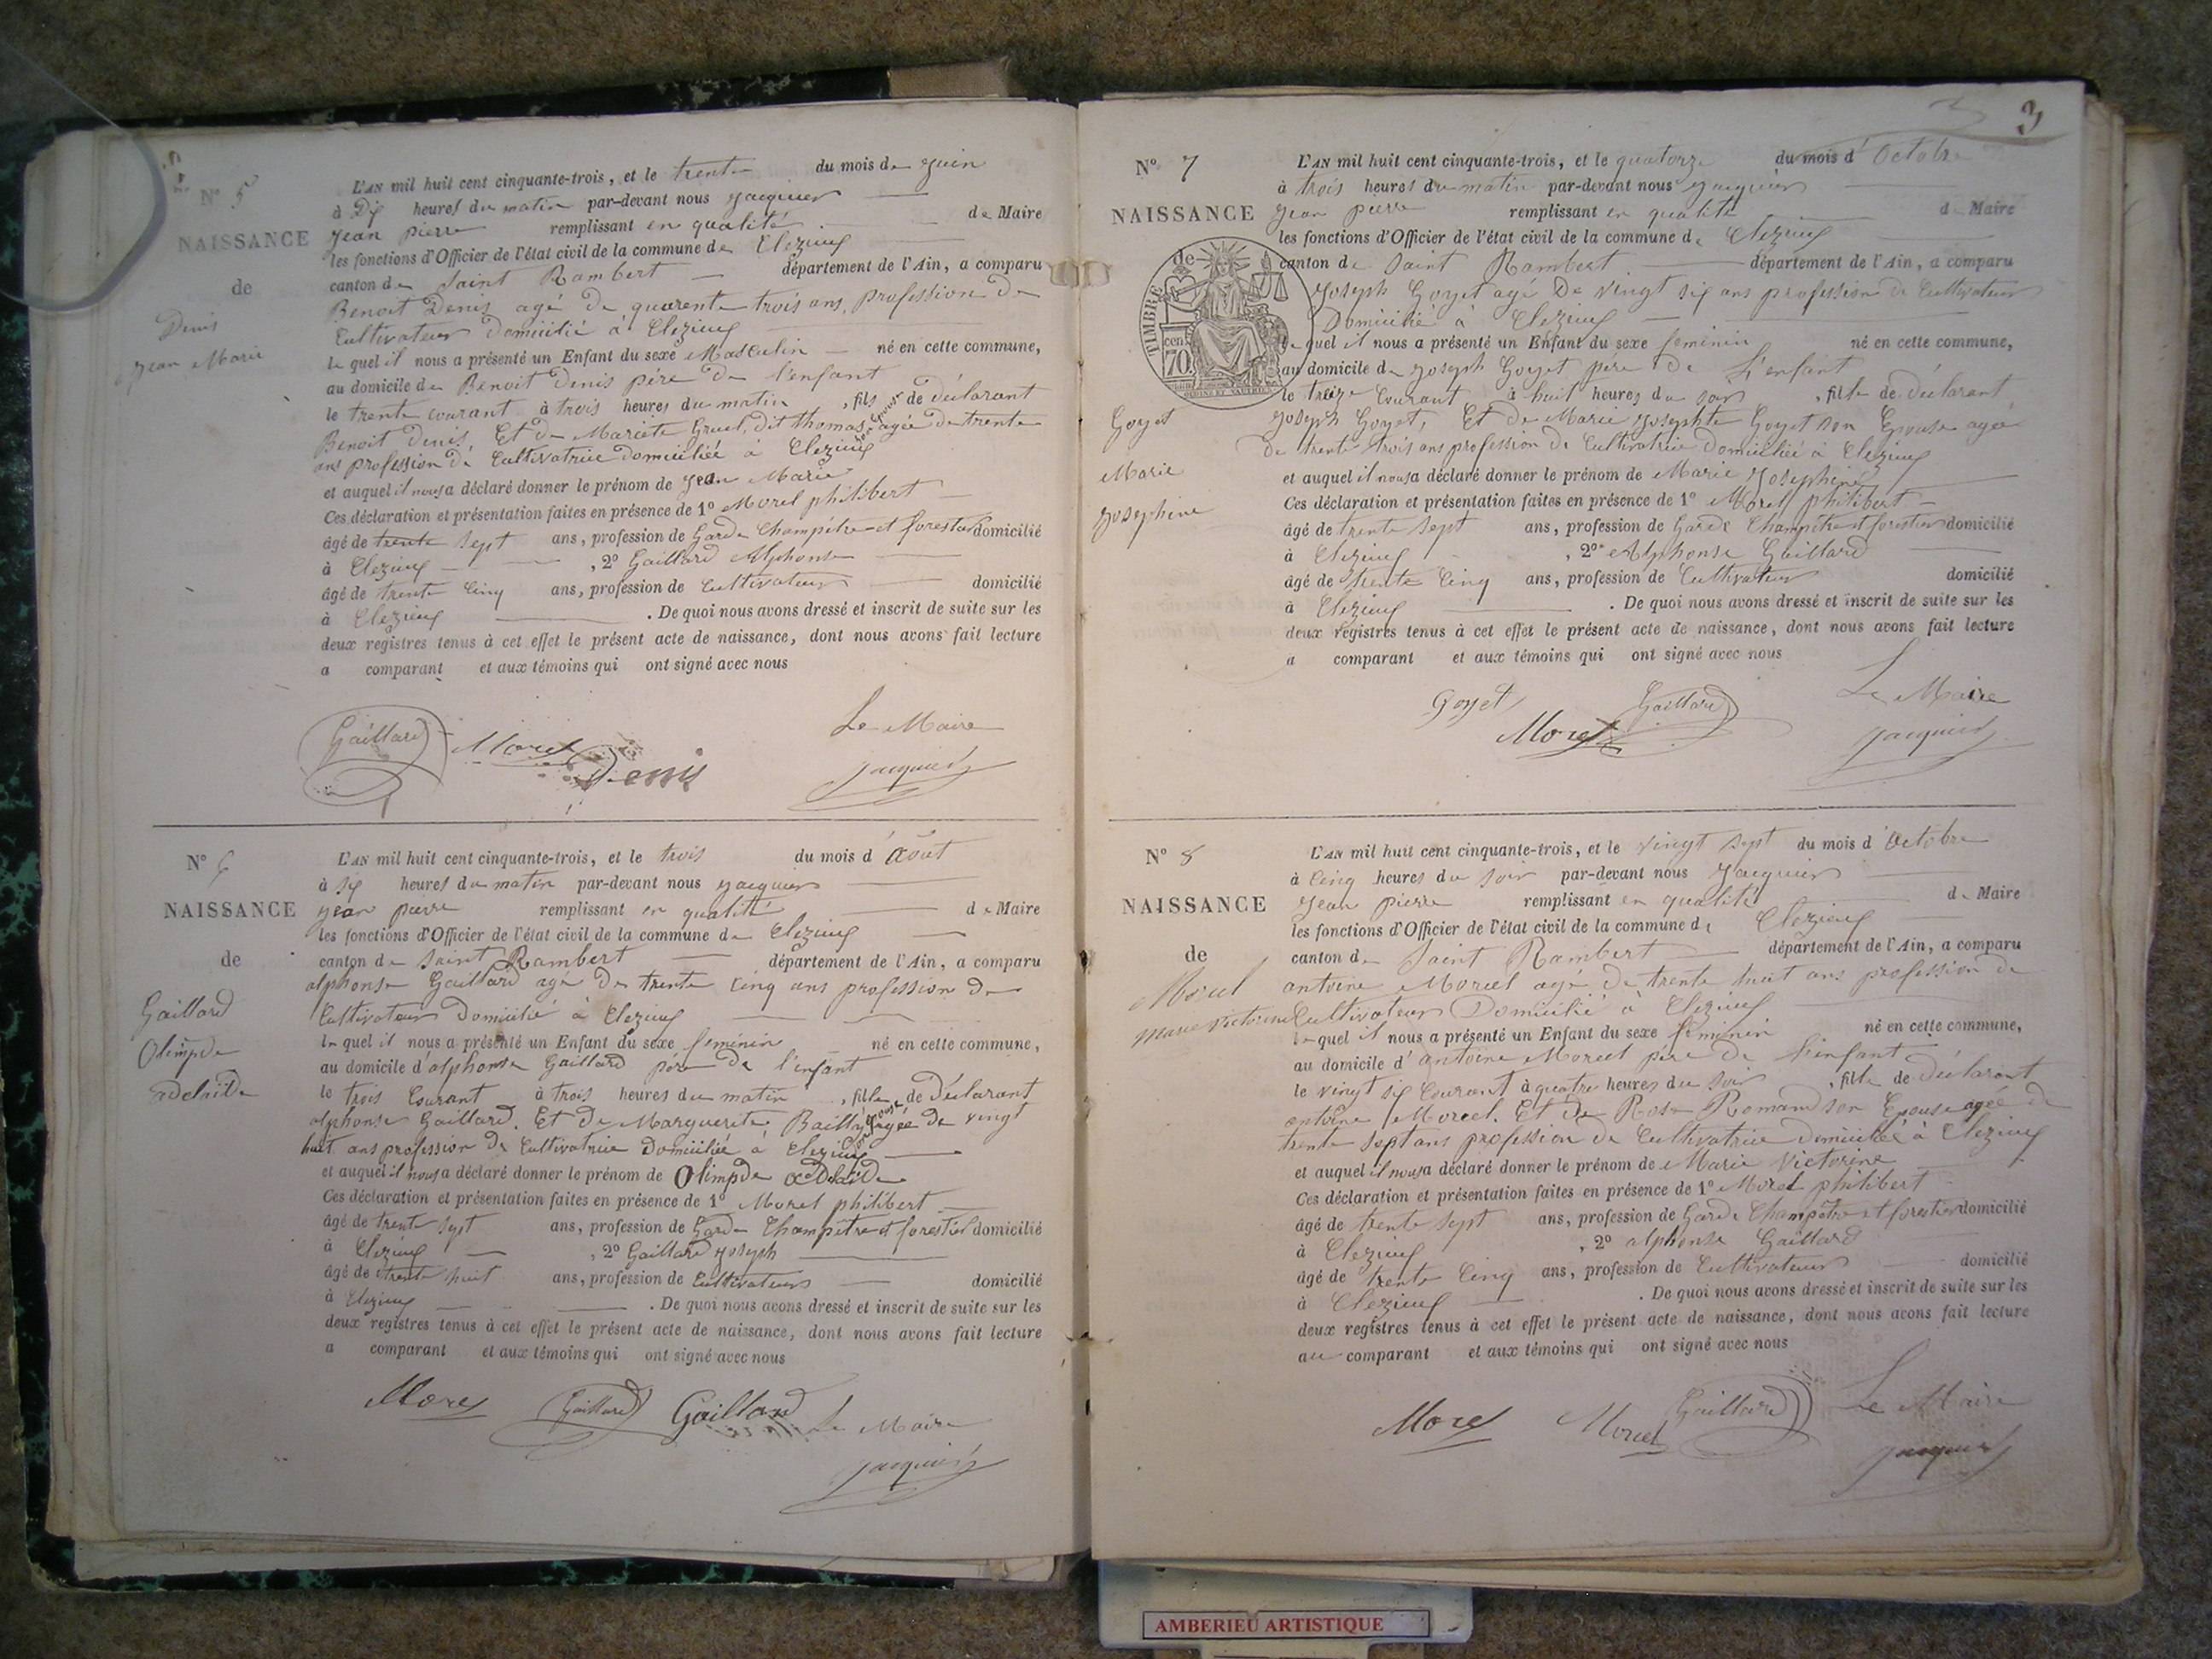 N° 5
NAISSANCE
de
Denis
Jean Marie
L'AN mil huit cent cinquante-trois, et le trente du mois de Juin
à Dix heures du matin par-devant nous Jacquier
Jean pierre remplissant en qualité de Maire
les fonctions d'Officier de l'état civil de la commune de Clezieux
canton de Saint Rambert département de l'Ain, a comparu
Benoit Denis agé de quarente trois ans, profession de
Cultivateur domicilié à Clezieux
le quel il nous a présenté un Enfant du sexe Masculin né en cette commune,
au domicile de Benoit Denis père de l'enfant
le trente courant à trois heures du matin, fils de déclarant
Benoit Denis, Et de Mariete Gruel, dit thomas, son Epouse agée de trente
ans profession de Cultivatrice domiciliée à Clezieux
et auquel il nous a déclaré donner le prénom de Jean Marie
Ces déclaration et présentation faites en présence de 1° Morel philibert
âgé de trente sept ans, profession de Garde Champêtre et forestier domicilié
à Clezieux, 2° Gaillard Alphonse
âgé de trente Cinq ans, profession de Cultivateur domicilié
à Clezieux. De quoi nous avons dressé et inscrit de suite sur les
deux registres tenus à cet effet le présent acte de naissance, dont nous avons fait lecture
a comparant et aux témoins qui ont signé avec nous
Le Maire
Gaillard Morel Denis Jacquier
N° 6
NAISSANCE
de
Gaillard
Olimpde
adelaïde
L'AN mil huit cent cinquante-trois, et le trois du mois d'Août
à Six heures du matin par-devant nous Jacquier
Jean pierre remplissant en qualité de Maire
les fonctions d'Officier de l'état civil de la commune de Clezieux
canton de Saint Rambert département de l'Ain, a comparu
alphonse Gaillard agé de trente Cinq ans profession de
Cultivateur Domicilié à Clezieux
le quel il nous a présenté un Enfant du sexe féminin né en cette commune,
au domicile d'alphonse Gaillard père de l'enfant
le trois Courant à trois heures du matin, fille de Déclarant
alphonse Gaillard. Et de Marguerite Bailly son Epouse agée de vingt
huit ans profession de Cultivatrice Domiciliée à Clezieux
et auquel il nous a déclaré donner le prénom de Olimpde adelaïde
Ces déclaration et présentation faites en présence de 1° Morel philibert
âgé de trente sept ans, profession de Garde Champêtre et forestier domicilié
à Clezieux, 2° Gaillard Joseph
âgé de trente huit ans, profession de Cultivateur domicilié
à Clezieux. De quoi nous avons dressé et inscrit de suite sur les
deux registres tenus à cet effet le présent acte de naissance, dont nous avons fait lecture
a comparant et aux témoins qui ont signé avec nous
Morel Gaillard Gaillard Le Maire
Jacquier
3
N° 7
NAISSANCE
de
TIMBRE
70 cent
Goyet
Marie
Josephine
L'AN mil huit cent cinquante-trois, et le quatorze du mois d'Octobre
à trois heures du matin par-devant nous Jacquier
Jean pierre remplissant en qualité de Maire
les fonctions d'Officier de l'état civil de la commune de Clezieux
canton de Saint Rambert département de l'Ain, a comparu
Joseph Goyet agé De Vingt Six ans profession de Cultivateur
Domicilié à Clezieux
le quel il nous a présenté un Enfant du sexe féminin né en cette commune,
au domicile de Joseph Goyet père de L'enfant
le treize Courant à huit heures du soir, fille de déclarant
Joseph Goyet, Et de Marie Josephte Goyet son Epouse agée
De trente trois ans profession de Cultivatrice Domiciliée à Clezieux
et auquel il nous a déclaré donner le prénom de Marie Josephine
Ces déclaration et présentation faites en présence de 1° Morel philibert
âgé de trente sept ans, profession de Garde Champêtre et forestier domicilié
à Clezieux, 2° Alphonse Gaillard
âgé de trente Cinq ans, profession de Cultivateur domicilié
à Clezieux. De quoi nous avons dressé et inscrit de suite sur les
deux registres tenus à cet effet le présent acte de naissance, dont nous avons fait lecture
a comparant et aux témoins qui ont signé avec nous
Goyet Gaillard Le Maire
Morel Jacquier
N° 8
NAISSANCE
de
Morcel
Marie Victorine
L'AN mil huit cent cinquante-trois, et le vingt sept du mois d'Octobre
à Cinq heures du soir par-devant nous Jacquier
Jean pierre remplissant en qualité de Maire
les fonctions d'Officier de l'état civil de la commune de Clezieux
canton de Saint Rambert département de l'Ain, a comparu
antoine Morcel agé de trente huit ans profession de
Cultivateur Domicilié à Clezieux
le quel il nous a présenté un Enfant du sexe féminin né en cette commune,
au domicile d'antoine Morcel père de L'enfant
le vingt six Courant à quatre heures du soir, fille de déclarant
antoine Morcel. Et de Rose Romand son Epouse agée de
trente Sept ans profession de Cultivatrice domiciliée à Clezieux
et auquel il nous a déclaré donner le prénom de Marie Victorine
Ces déclaration et présentation faites en présence de 1° Morel philibert
âgé de trente sept ans, profession de Garde Champêtre et forestier domicilié
à Clezieux, 2° alphonse Gaillard
âgé de trente Cinq ans, profession de Cultivateur domicilié
à Clezieux. De quoi nous avons dressé et inscrit de suite sur les
deux registres tenus à cet effet le présent acte de naissance, dont nous avons fait lecture
au comparant et aux témoins qui ont signé avec nous
Morel Morcel Gaillard Le Maire
Jacquier
AMBERIEU ARTISTIQUE